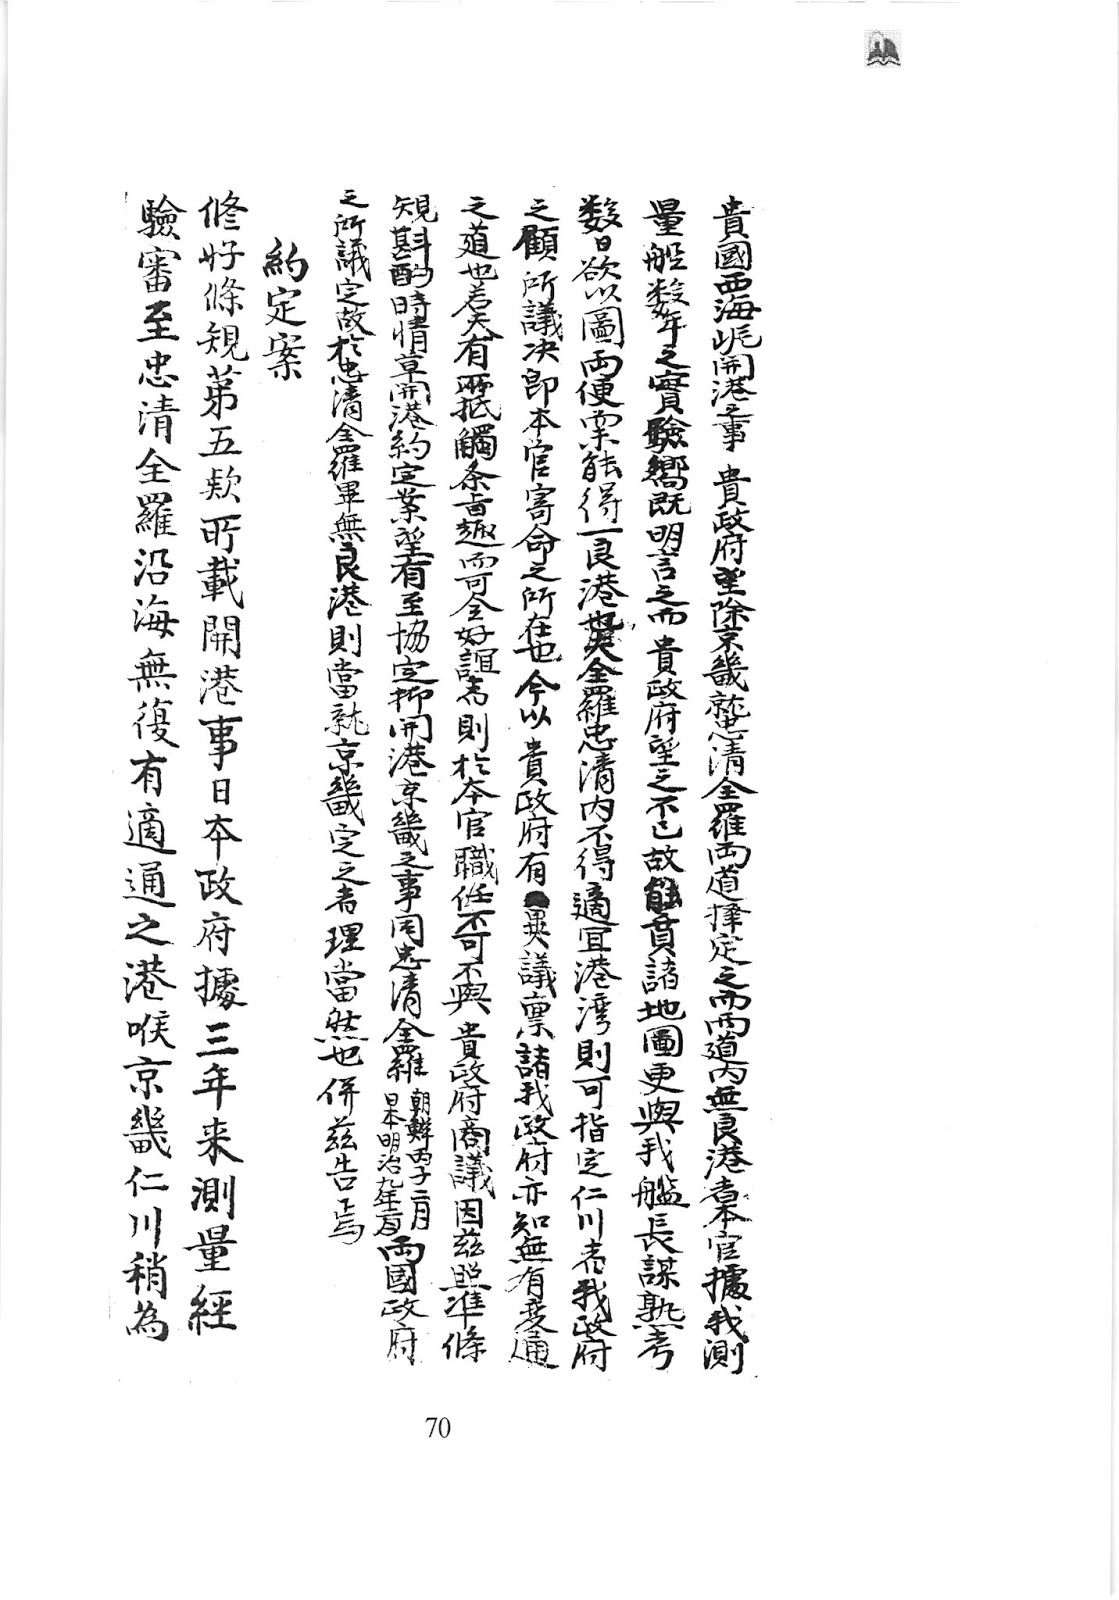 貴國西海岸開港之事 貴政府望除京畿就忠清全羅両道擇定之而両道内無良港者本官據我測
量船数年之實驗嚮既明言之而 貴政府望之不已故能賁諸地圖更與我艦長謀熟考
数日欲以圖両便果能得一良港也矣全羅忠清内不得適宜港湾則可指定仁川者我政府
之顧所議决即本官寄命之所在也今以 貴政府有異議禀諸我政府亦知無有変通
之道也若夫有所抵觸条旨趣而可全好誼者則於本官職任不可不與 貴政府商議因茲照准條
規斟酌時情草開港約定案望有至協定抑開港京畿之事因忠清全羅 朝鮮丙子二月 日本明治九年二月 両國政府
之所議定故於忠清全羅畢無良港則當就京畿定之者理當然也併茲告焉
約定案
修好條規第五欵所載開港事日本政府據三年来測量經
驗審至忠清全羅沿海無復有適通之港喉京畿仁川稍為
70